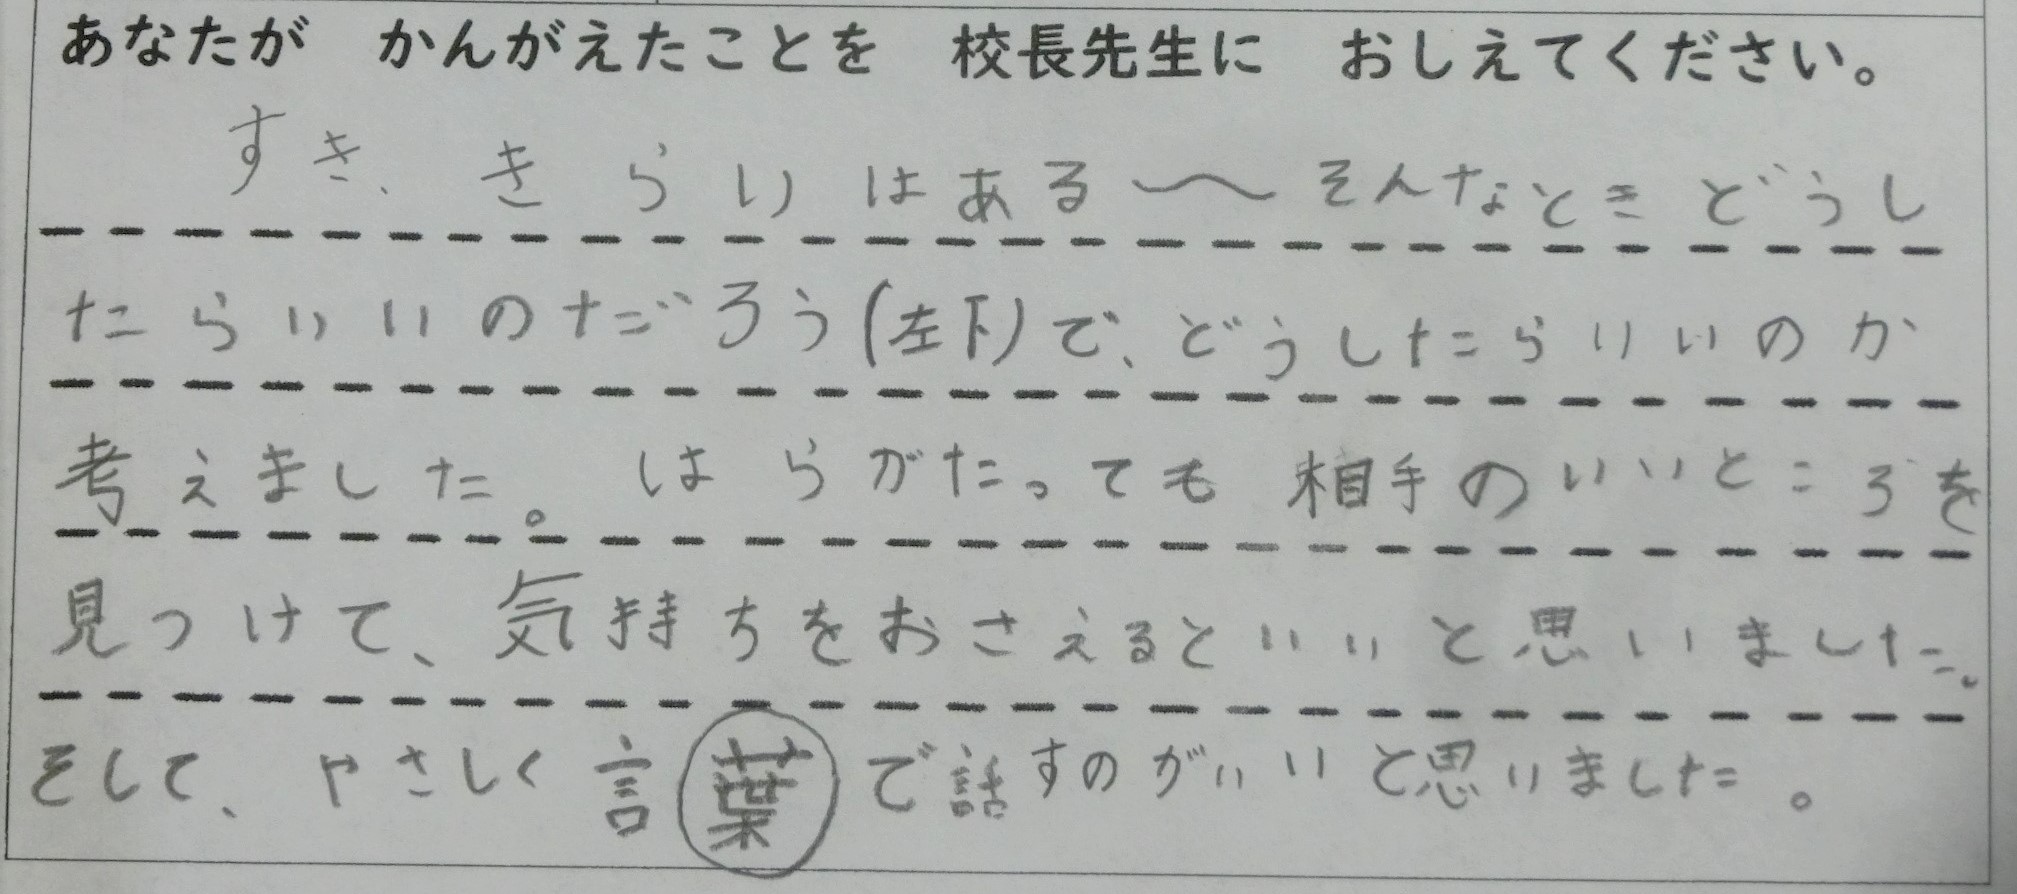 あなたが　かんがえたことを　校長先生に　おしえてください。
すき、きらいはある〜そんなときどうし
たらいいのだろう(左下)で、どうしたらいいのか
考えました。はらがたっても相手のいいところを
見つけて、気持ちをおさえるといいと思いました。
そして、やさしく言葉で話すのがいいと思いました。